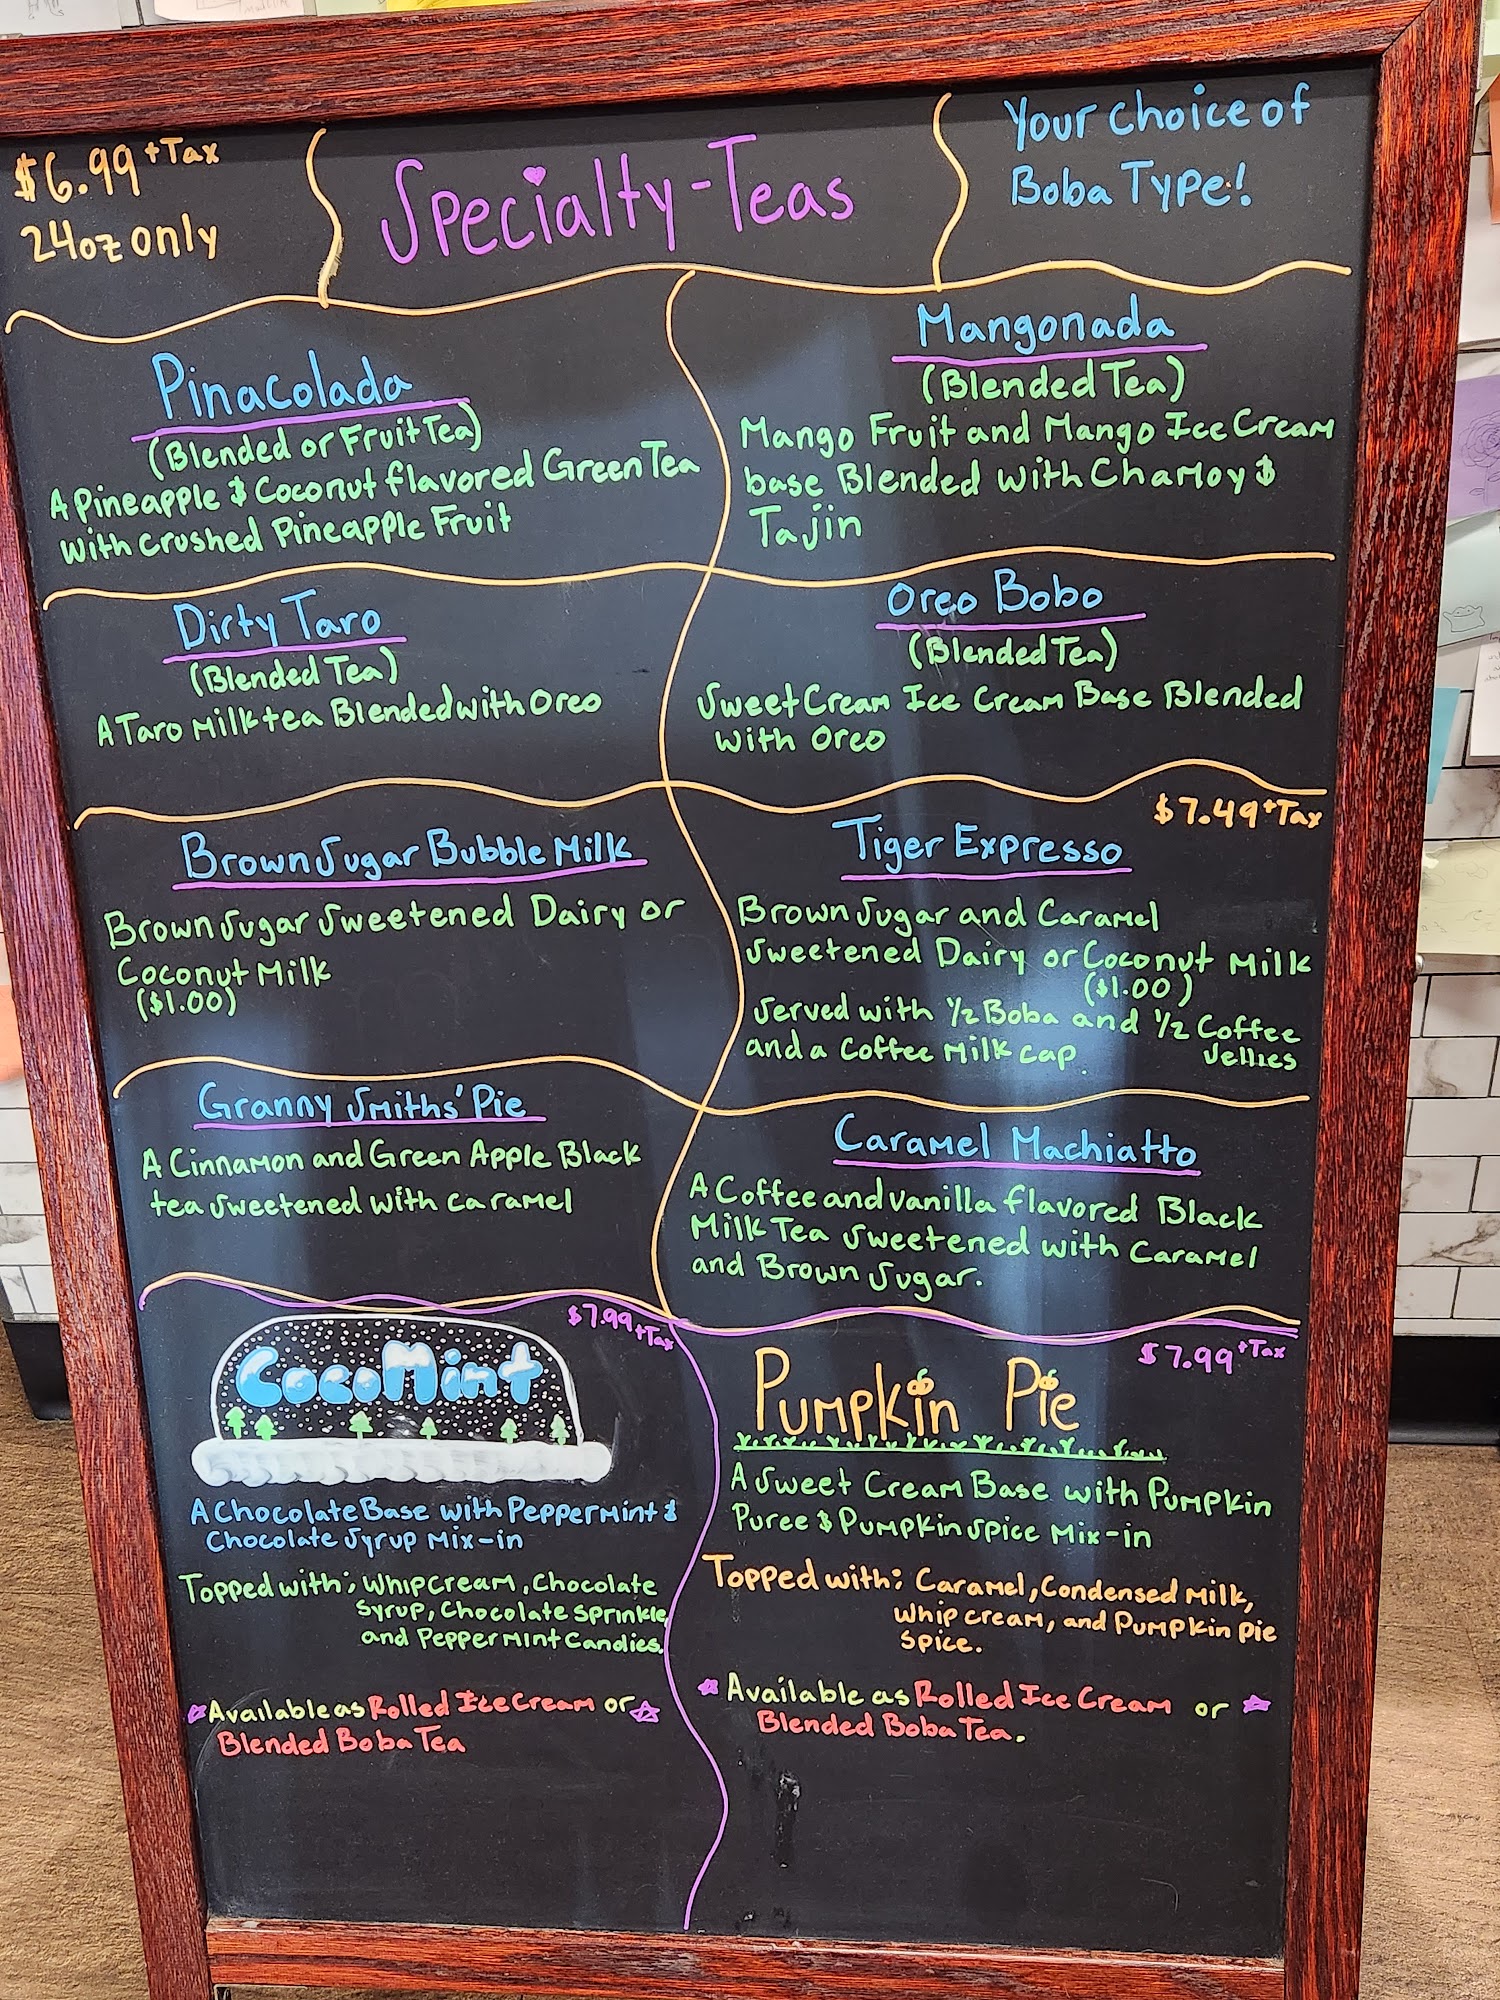 $6.99 +Tax
24oz only
Specialty-Teas
Your choice of
Boba Type!
Pinacolada
(Blended or Fruit Tea)
A Pineapple & Coconut flavored Green Tea
with crushed Pineapple Fruit
Mangonada
(Blended Tea)
Mango Fruit and Mango Ice Cream
base Blended with Chamoy &
Tajin
Dirty Taro
(Blended Tea)
A Taro Milk tea Blended with Oreo
Oreo Bobo
(Blended Tea)
Sweet Cream Ice Cream Base Blended
with Oreo
Brown Sugar Bubble Milk
Brown Sugar Sweetened Dairy or
Coconut Milk
($1.00)
$7.49 +Tax
Tiger Expresso
Brown Sugar and Caramel
Sweetened Dairy or Coconut Milk
($1.00)
Served with 1/2 Boba and 1/2 Coffee
Jellies
and a Coffee Milk cap.
Granny Smiths' Pie
A Cinnamon and Green Apple Black
tea sweetened with caramel
Caramel Machiatto
A Coffee and vanilla flavored Black
Milk Tea sweetened with Caramel
and Brown Sugar.
$7.99 +Tax
CocoMint
A Chocolate Base with Peppermint &
Chocolate Syrup Mix-in
Topped with; Whipcream, Chocolate
Syrup, Chocolate Sprinkle,
and Peppermint Candies.
Available as Rolled Ice Cream or
Blended Boba Tea
$7.99 +Tax
Pumpkin Pie
A Sweet Cream Base with Pumpkin
Puree & Pumpkin Spice Mix-in
Topped with: Caramel, Condensed Milk,
Whip cream, and Pumpkin pie
Spice.
Available as Rolled Ice Cream or
Blended Boba Tea.